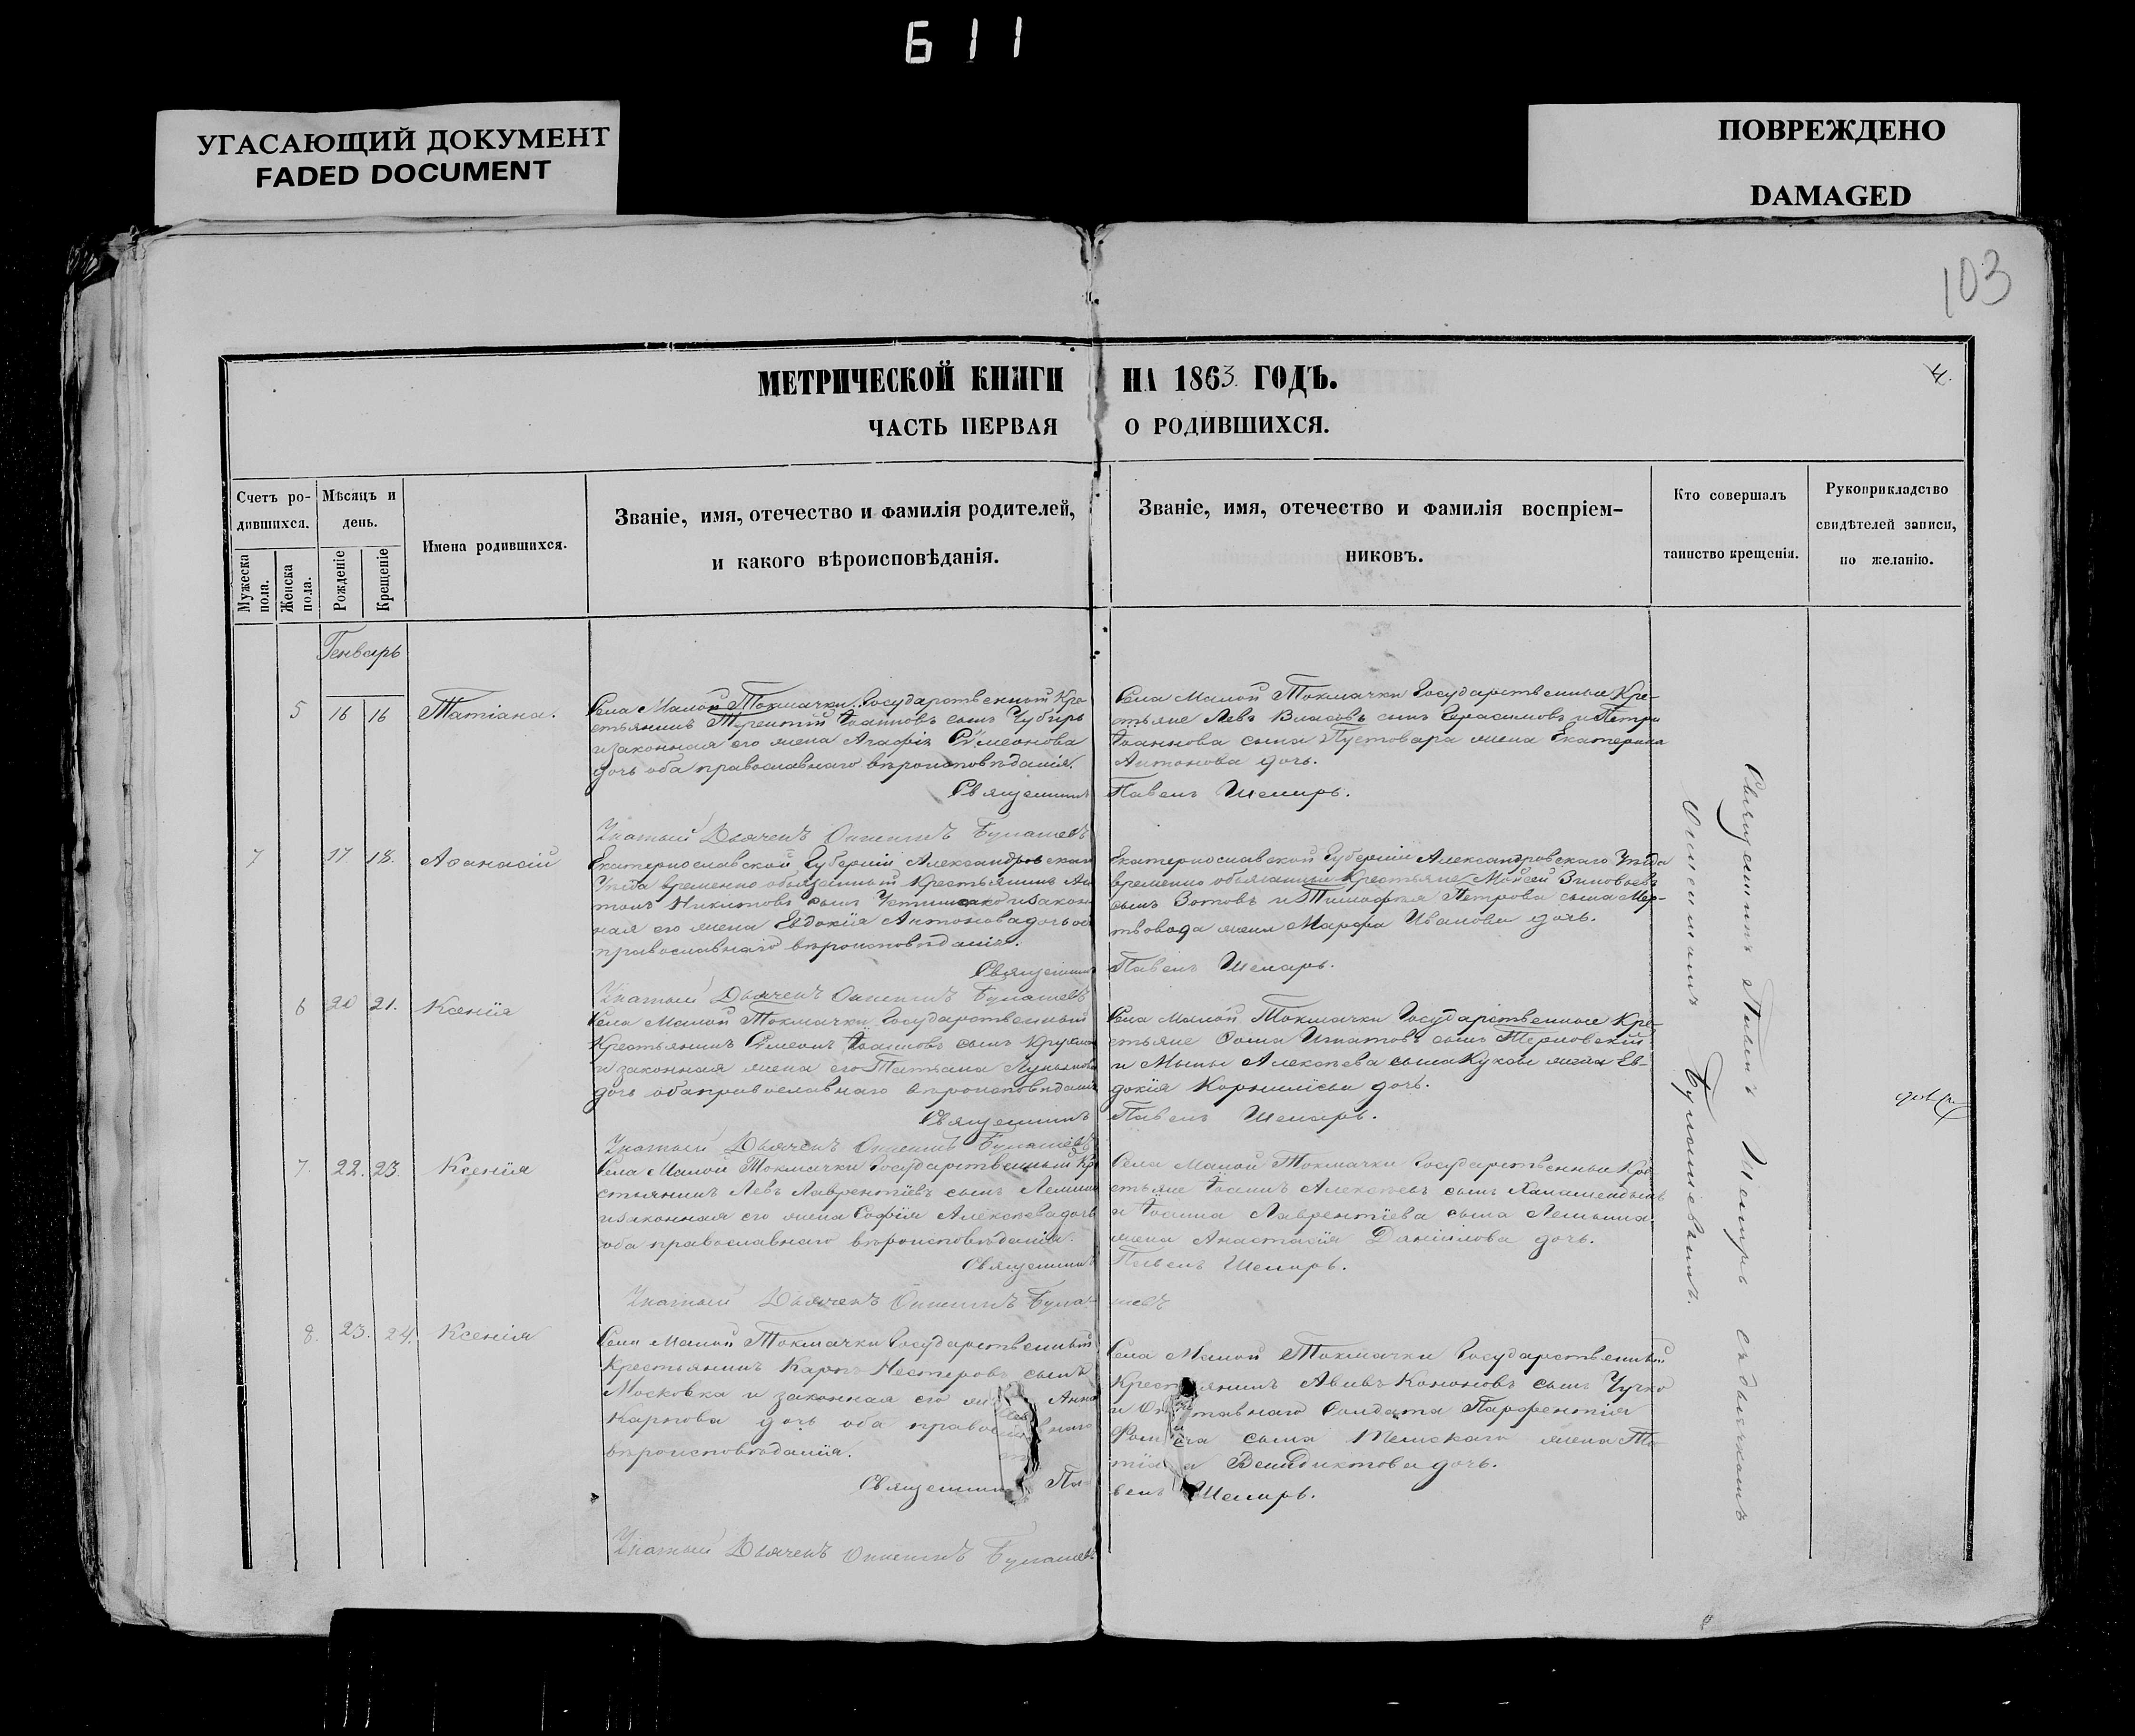 611
УГАСАЮЩИЙ ДОКУМЕНТ
FADED DOCUMENT
ПОВРЕЖДЕНО
DAMAGED
103
МЕТРИЧЕСКОЙ КНИГИ НА 1863 ГОДЪ.
4.
ЧАСТЬ ПЕРВАЯ О РОДИВШИХСЯ.
Счетъ ро-
дившихся.
Мужеска
пола.
Женска
пола.
Мѣсяцъ и
день.
Рожденіе
Крещеніе
Имена родившихся.
Званіе, имя, отечество и фамилія родителей,
и какого вѣроисповѣданія.
Званіе, имя, отечество и фамилія воспріем-
никовъ.
Кто совершалъ
таинство крещенія.
Рукоприкладство
свидѣтелей записи,
по желанію.
Генварь
5 16 16 Татіана.
Села Малой Токмачки Государственный Кре-
стьянинъ Терентій Іоанновъ сынъ Чубирь
и законная его жена Агафія Сѵмеонова
дочь оба православнаго вѣроисповѣданія.
Священникъ
Села Малой Токмачки Государственные Кре-
стьяне Левъ Власовъ сынъ Герасимовъ и Петра
Іоаннова сына Пустовара жена Екатерина
Антонова дочь.
Павелъ Шемаръ.
Дьячекъ
7 17 18. Аѳанасій
Екатеринославской Губерніи Александровскаго
Уѣзда временно обязанный Крестьянинъ Ан-
тонъ Никитовъ сынъ и закон-
ная его жена Евдокія Антонова дочь оба
православнаго вѣроисповѣданія.
Священникъ
Екатеринославской Губерніи Александровскаго Уѣзда
временно обязанные Крестьяне Моисей Зиновьевъ
сынъ Зотовъ и Тимофея Петрова сына Мер-
твовода жена Марфа Иванова дочь.
Павелъ Шемаръ.
Дьячекъ
6 20 21. Ксенія
Села Малой Токмачки Государственный
Крестьянинъ Сѵмеонъ Іоанновъ сынъ
и законная жена его Татьяна Лукьянова
дочь оба православнаго вѣроисповѣданія
Священникъ
Села Малой Токмачки Государственные Кре-
стьяне Ѳома Игнатовъ сынъ Терновскій
и Алексѣева сына жена Ев-
докія Корниліева дочь.
Павелъ Шемаръ.
Дьячекъ
7. 22. 23. Ксенія
Села Малой Токмачки Государственный Кре-
стьянинъ Левъ Лаврентіевъ сынъ
и законная его жена Софія Алексѣева дочь
оба православнаго вѣроисповѣданія.
Священникъ
Села Малой Токмачки Государственные Кре-
стьяне Іоаннъ Алексѣевъ сынъ
и Іоанна Лаврентіева сына
жена Анастасія Даніилова дочь.
Павелъ Шемаръ.
Дьячекъ
8. 23. 24. Ксенія
Села Малой Токмачки Государственный
Крестьянинъ Карпъ Нестеровъ сынъ
Московка и законная его Анна
Карпова дочь оба
вѣроисповѣданія.
Священникъ Па-
Села Малой Токмачки Государственный
Авивъ Кононовъ сынъ Чучко
и Солдата Парфентія
сына жена Та-
Венедиктова дочь.
велъ Шемаръ.
Дьячекъ
Священникъ Павелъ Шемаръ съ дьячкомъ